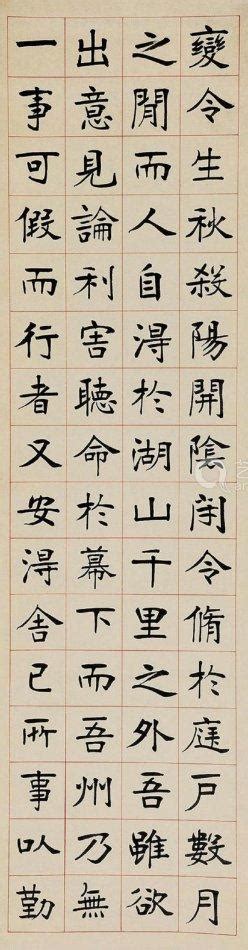 變令生秋殺陽開陰闭令脩於庭戶數月
之間而人自得於湖山千里之外吾雖欲
出意見論利害聽命於幕下而吾州乃無
一事可假而行者又安得舍已所事以勤